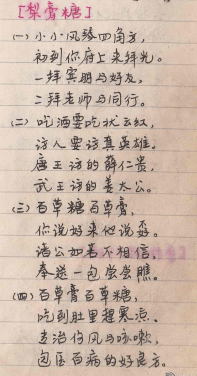 [梨膏糖]
(一)小小风琴四角方,
初到你府上来拜光。
一拜宾朋与好友,
二拜老师与同行。
(二)吃酒要吃状云红,
访人要访真英雄。
唐王访的薛仁贵,
武王访的姜太公。
(三)百草糖百草膏,
你说好来他说孬。
诸公如若不相信,
奉送一包尝尝瞧。
(四)百草膏百草糖,
吃到肚里提寒凉。
专治伤风与咳嗽,
包医百病的好良方。